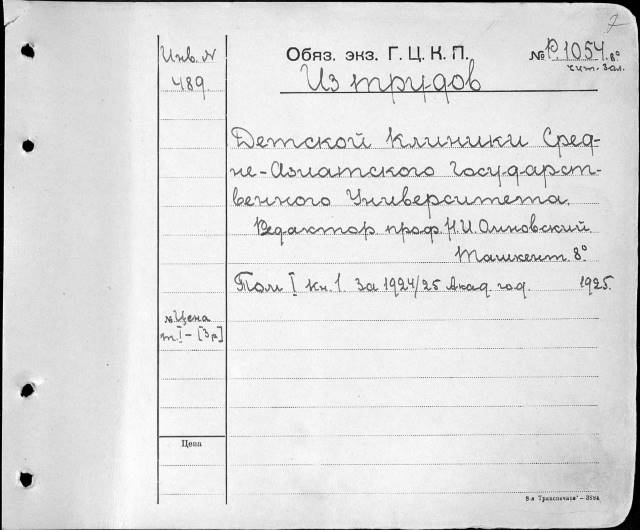 7
Инв. №
489.
Обяз. экз. Г. Ц. К. П.
№ Р.1054. 8°
чит. зал.
Из трудов
Детской Клиники Сред-
не-Азиатского Государст-
венного Университета.
Редактор проф. Н.И.
Ташкент 8°
Том I кн. 1. За 1924/25 Акад. год. 1925.
Цена
т. I – [3 р]
Цена